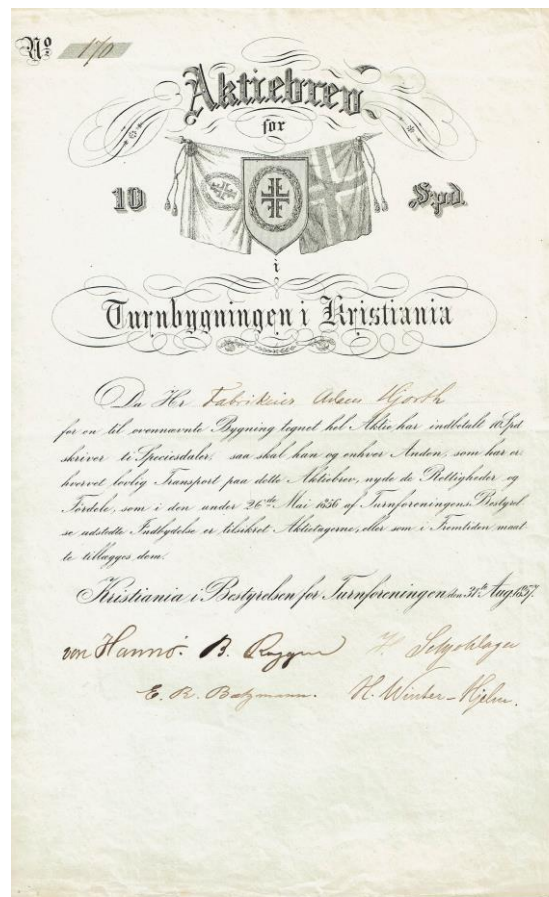 No 170
Aktiebrev
for
10 Spd.
i
Turnbygningen i Kristiania
Da Hr Fabrikeier Hjorth
for en til ovennævnte Bygning tegnet hel Aktie har indbetalt 10 Spd
skriver ti Speciesdaler. saa skal han og enhver Anden, som har er
hvervet lovlig Transport paa dette Aktiebrev, nyde de Rettigheder og
Fordele, som i den under 26de Mai 1856 af Turnforeningens Bestyrel
se udstedte Indbydelse er tilsikret Aktietagerne, eller som i Fremtiden maat
te tillægges dem.
Kristiania i Bestyrelsen for Turnforeningen den 31te Aug 1857.
von Hanno. B. H.
E. R. H. Winter-Hjelm.